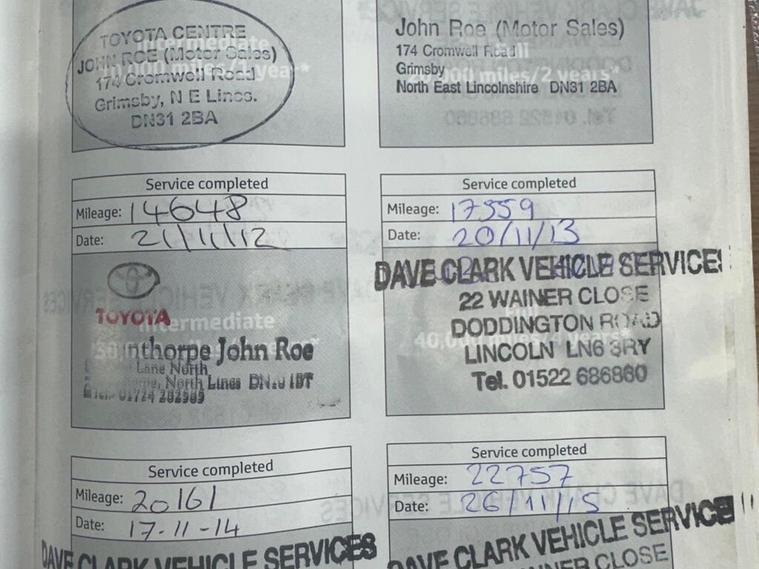 TOYOTA CENTRE
JOHN ROE (Motor Sales)
174 Cromwell Road
Grimsby, N E Lincs.
DN31 2BA
Intermediate
10,000 miles/1 year*
John Roe (Motor Sales)
174 Cromwell Road
Grimsby
North East Lincolnshire DN31 2BA
Full
20,000 miles/2 years*
Service completed
Mileage: 14648
Date: 21/11/12
TOYOTA
Intermediate
nthorpe John Roe
Lane North
North Lincs
01724 282909
Service completed
Mileage: 17559
Date: 20/11/13
DAVE CLARK VEHICLE SERVICES
22 WAINER CLOSE
DODDINGTON ROAD
40,000 miles/4 years*
LINCOLN LN6 3RY
Tel. 01522 686860
Service completed
Mileage: 20161
Date: 17-11-14
DAVE CLARK VEHICLE SERVICES
Service completed
Mileage: 22757
Date: 26/11/15
DAVE CLARK VEHICLE SERVICE
WAINER CLOSE